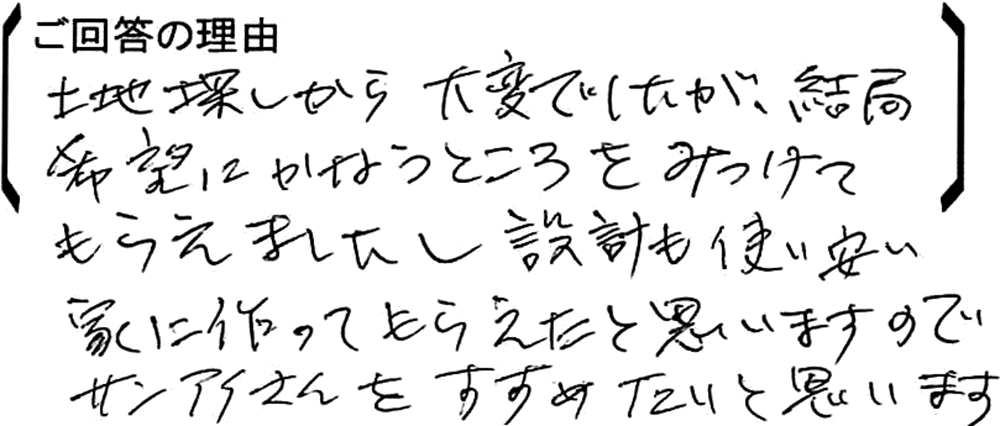 ご回答の理由
土地探しから大変でしたが、結局
希望にかなうところをみつけて
もらえましたし設計も使い安い
家に作ってもらえたと思いますので
サンアイさんをすすめたいと思います